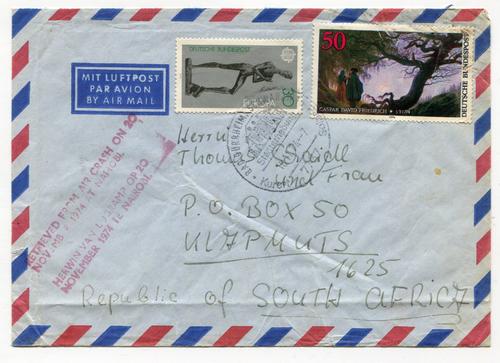 MIT LUFTPOST
PAR AVION
BY AIR MAIL
DEUTSCHE BUNDESPOST
EUROPA
30
50
CASPAR DAVID FRIEDRICH · 1974
DEUTSCHE BUNDESPOST
RETRIEVED FROM AIR CRASH ON 20
NOVEMBER 1974 AT NAIROBI.
HERWIN VAN LUGRAMP OP 20
NOVEMBER 1974 TE NAIROBI.
Herrn
Thomas
und Frau
P.O. BOX 50
KLAPMUTS
1625
Republic of SOUTH AFRICA